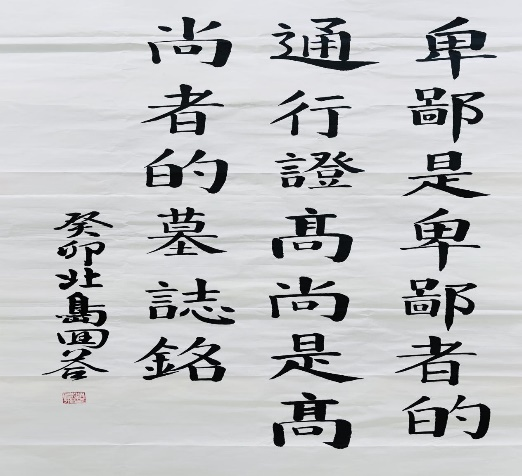 卑鄙是卑鄙者的
通行證髙尚是髙
尚者的墓誌銘
癸卯北島回答